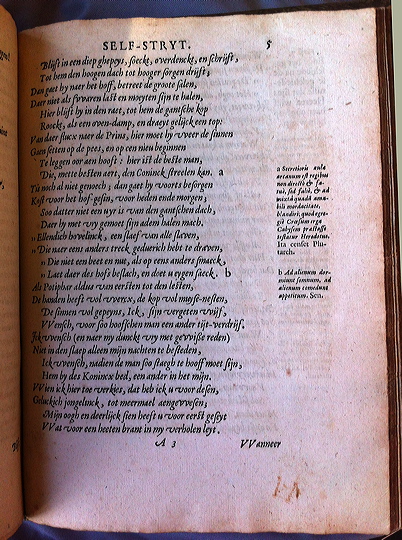 SELF-STRYT. 5
Blijft in een diep ghepeys, soeckt, overdenckt, en schrijft,
Tot hem den hoogen dach tot hooger sorgen drijft;
Dan gaet hy naer het hoff, betreet de groote salen,
Daer niet als swaren last en moeyten sijn te halen,
Hier blijft hy in den raet, tot hem de gantsche kop
Roockt, als een oven-damp, en draeyt gelijck een top:
Van daer flucx naer de Prins, hier moet hy weer de sinnen
Gaen setten op de pees, en op een nieu beginnen
Te leggen oor aen hooft: hier ist de beste man,
Die, mette besten aert, den Coninck streelen kan. a
Tis noch al niet genoech; dan gaet hy voorts besorgen
Kost voor het hof-gesin, voor heden ende morgen,
Soo datter niet een uyr is van den gantschen dach,
Daer hy met wy gemoet sijn adem halen mach.
,, Ellendich hovelinck, een slaef van alle slaven,
,, Die naer eens anders treck geduerich hebt te draven,
,, Die niet een beet en nut, als op eens anders smaeck,
,, Laet daer des hofs beslach, en doet u eygen saeck. b
Als Potiphar aldus van eersten tot den lesten,
De handen heeft vol wercx, de kop vol muyse-nesten,
De sinnen vol gepeyns, Ick, sijn vergeten wijf,
Wensch, voor soo hoofschen man een ander tijt-verdrijf.
Ick wensch (en naer my dunckt wy met gewisse reden)
Niet in den slaep alleen mijn nachten te besteden,
Ick wensch, nadien de man soo staegh te hooff moet sijn,
Hem by des Conincx bed, een ander in het mijn.
Wien ick hier toe verkies, dat heb ick u voor desen,
Geluckich jongelinck, tot meermael aengewesen,
Mijn oogh en deerlijck sien heeft u voor eerst geseyt
Wat voor een heeten brant in my verholen leyt.
A 3 VVanneer
a Secretioris aula
arcanum est regibus
non directè &
sed falsè, & ad
mixtâ quadâ
mordacitate,
blandiri: quod
gessit Croesum erga
Cabysem
testatur Herodotus.
Ita censet Plu-
tarch.
b Ad alienum dor-
miunt somnum, ad
alienum comedunt
appetitum. Sen.